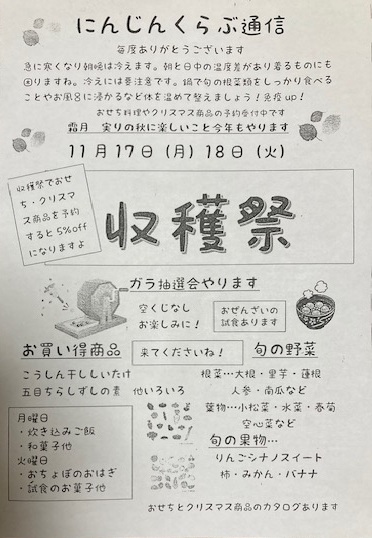 にんじんくらぶ通信
毎度ありがとうございます
急に寒くなり朝晩は冷えます。朝と日中の温度差があり着るものにも
困りますね。冷えには要注意です。鍋で旬の根菜類をしっかり食べる
ことやお風呂に浸かるなど体を温めて整えましょう！免疫up！
おせち料理やクリスマス商品の予約受付中です
霜月　実りの秋に楽しいこと今年もやります
11月17日（月）18日（火）
収穫祭でおせ
ち・クリスマ
ス商品を予約
すると5%off
になりますよ
収穫祭
ガラ抽選会やります
空くじなし
お楽しみに！
おぜんざいの
試食あります
お買い得商品
来てくださいね！
旬の野菜
こうしん干ししいたけ
五目ちらしずしの素　他いろいろ
根菜…大根・里芋・蓮根
人参・南瓜など
葉物…小松菜・水菜・春菊
空心菜など
月曜日
・炊き込みご飯
・和菓子他
火曜日
・おちょぼのおはぎ
・試食のお菓子他
旬の果物…
りんごシナノスイート
柿・みかん・バナナ
おせちとクリスマス商品のカタログあります